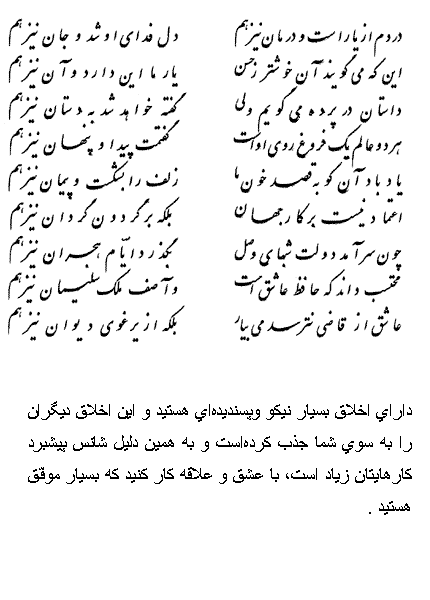 دردم از یار است و درمان نیز هم دل فدای او شد و جان نیز هم
این که می گویند آن خوشتر ز حسن یار ما این دارد و آن نیز هم
داستان در پرده می گویم ولی گفته خواهد شد به دستان نیز هم
هر دو عالم یک فروغ روی اوست گفتمت پیدا و پنهان نیز هم
یاد باد آن کو به قصد خون ما زلف را بشکست و پیمان نیز هم
اعتماد نیست بر کار جهان بلکه بر گردون گردان نیز هم
چون سرآمد دولت شبهای وصل بگذرد ایّام هجران نیز هم
محتسب داند که حافظ عاشق است وآصف ملک سلیمان نیز هم
عاشق از قاضی نترسد می بیار بلکه از یرغوی دیوان نیز هم
داراي اخلاق بسیار نیکو وپسندیده‌اي هستید و این اخلاق دیگران
را به سوي شما جذب کرده‌است و به همین دلیل شانس پیشبرد
کارهایتان زیاد است، با عشق و علاقه کار کنید که بسیار موفق
هستید .